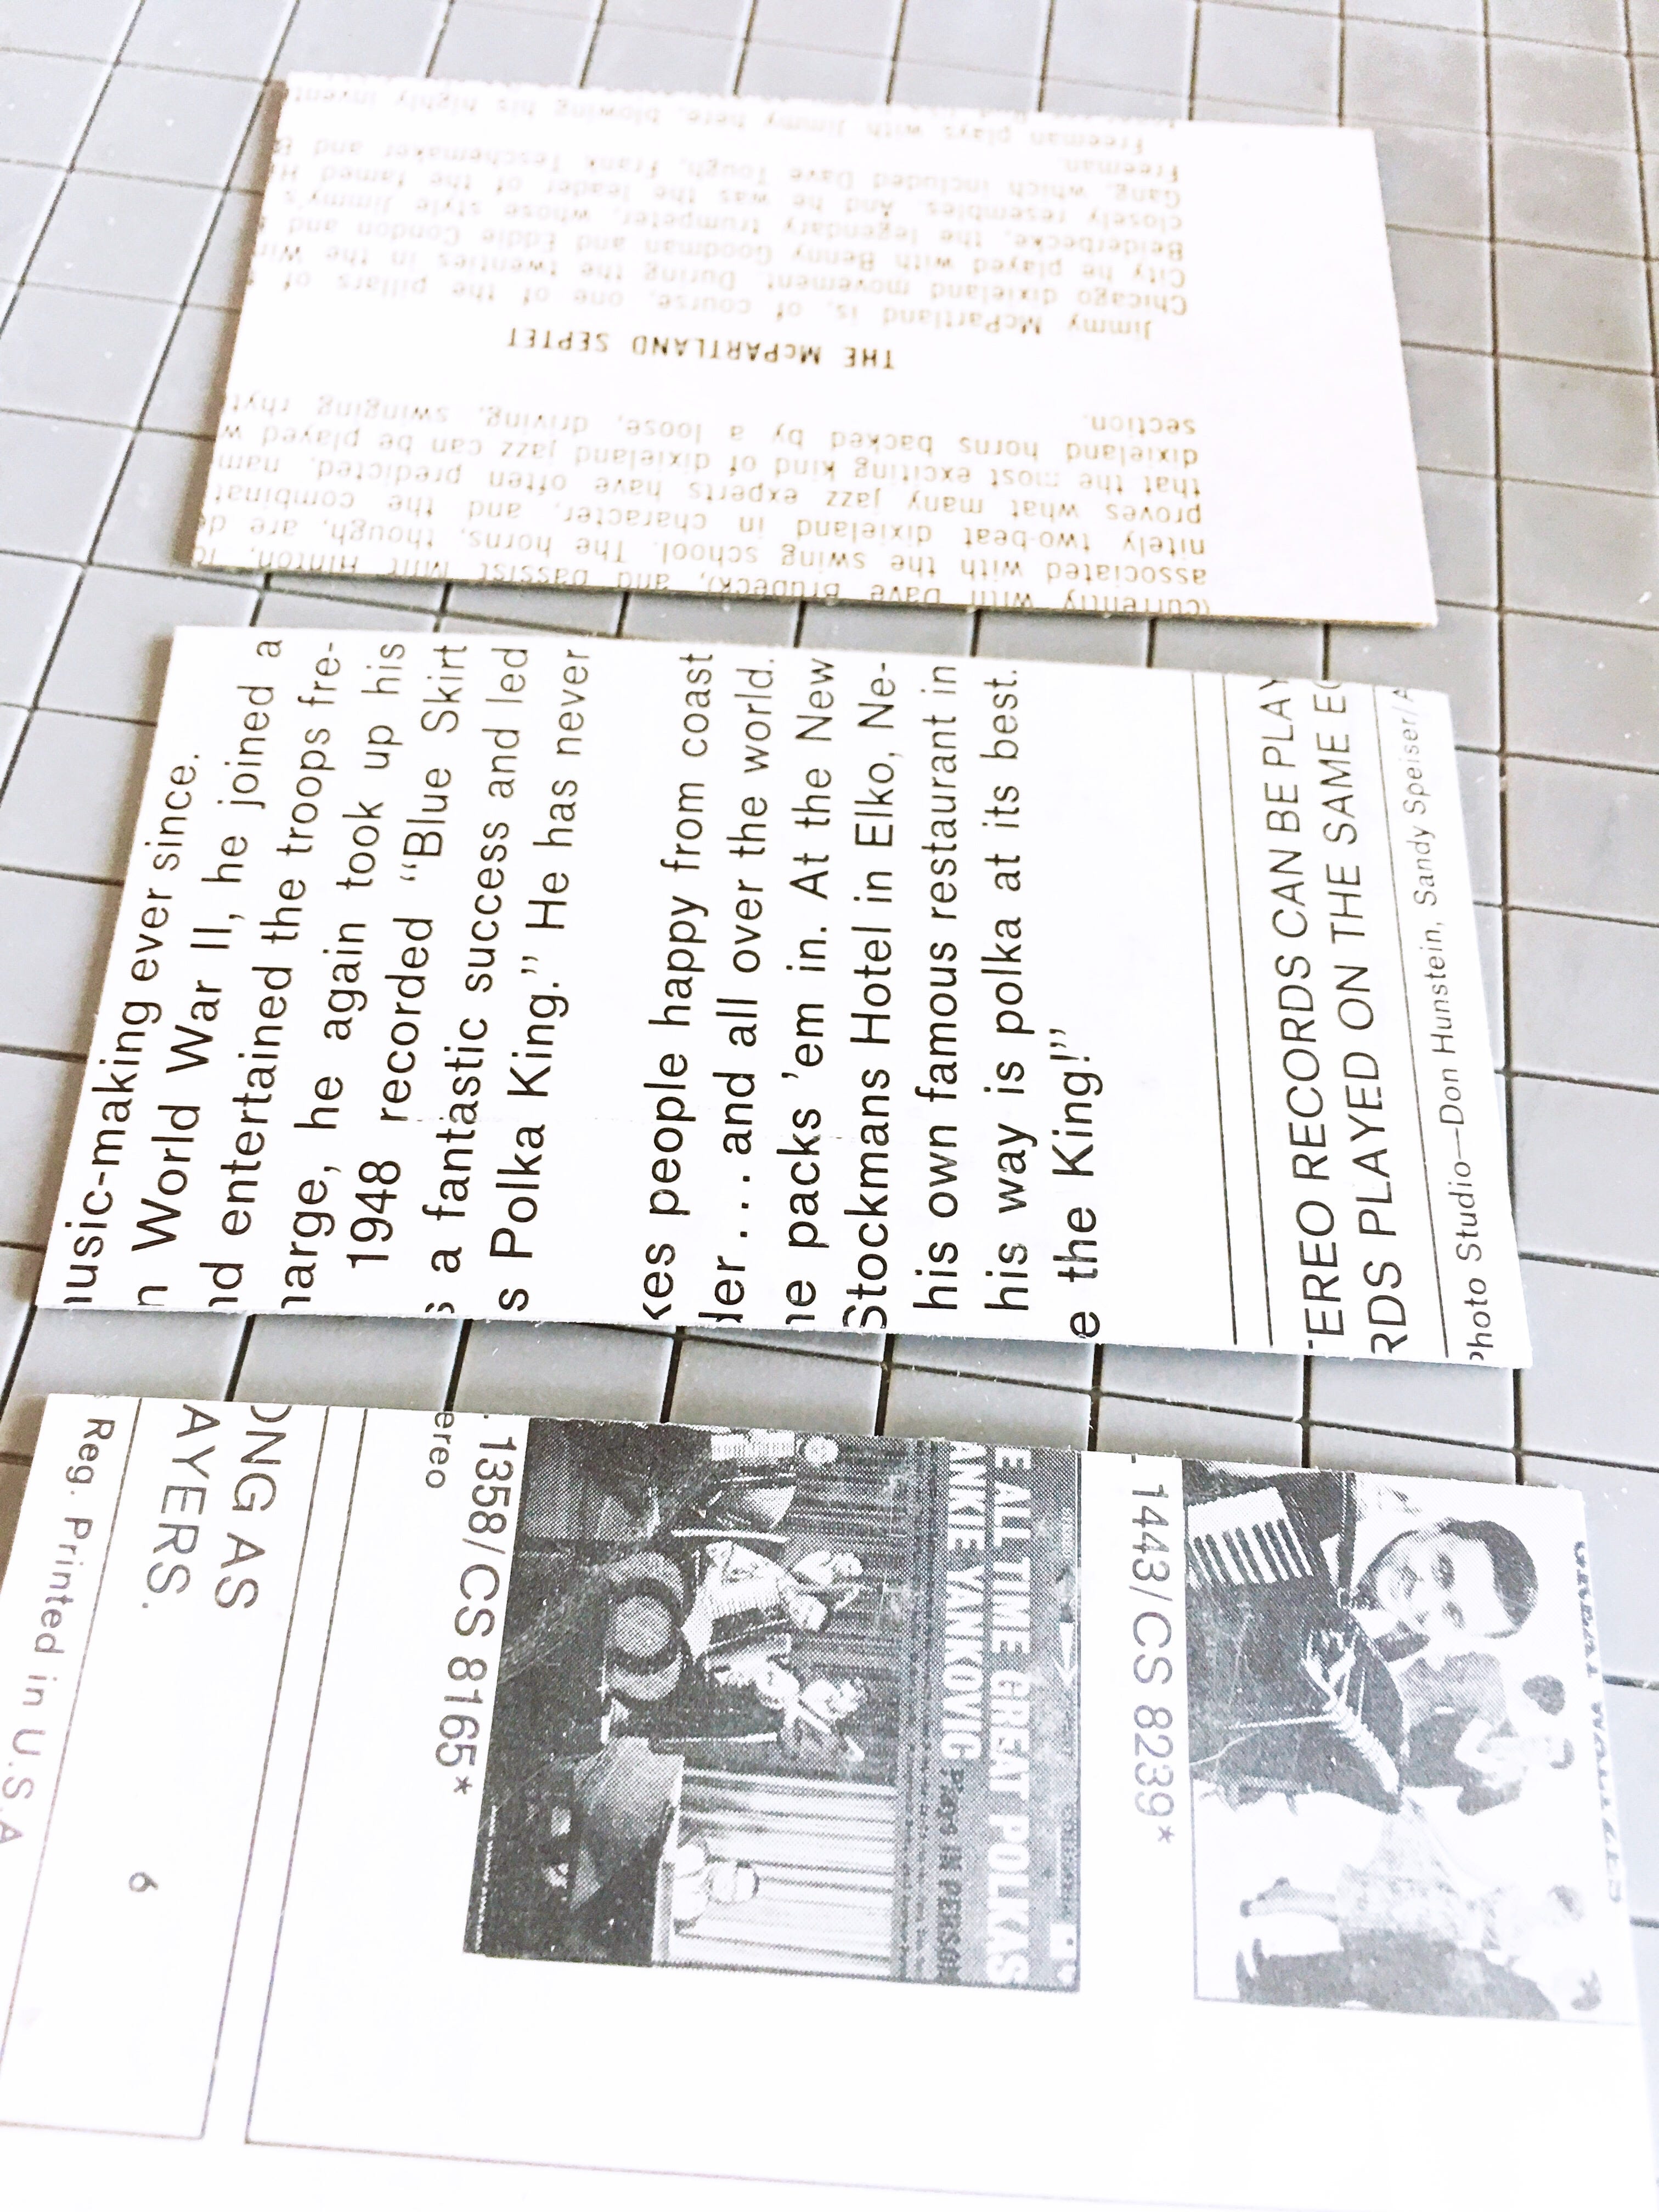 Freeman plays with Jimmy here, blowing his highly invent
Freeman.
Gang, which included Dave Tough, Frank Teschemaker and B
closely resembles. And he was the leader of the famed
Beiderbecke, the legendary trumpeter, whose style Jimmy's
City he played with Benny Goodman and Eddie Condon and
Chicago dixieland movement. During the twenties in the Win
Jimmy McPartland is, of course, one of the pillars of
THE McPARTLAND SEPTET
section.
dixieland horns backed by a loose, driving, swinging rhyt
that the most exciting kind of dixieland jazz can be played w
proves what many jazz experts have often predicted, nam
nitely two-beat dixieland in character, and the combinat
associated with the swing school. The horns, though, are de
(currently with Dave Brubeck), and bassist Milt Hinton,
usic-making ever since.
n World War II, he joined a
nd entertained the troops fre-
harge, he again took up his
1948 recorded “Blue Skirt
s a fantastic success and led
s Polka King.” He has never
kes people happy from coast
der...and all over the world.
he packs ’em in. At the New
Stockmans Hotel in Elko, Ne-
his own famous restaurant in
his way is polka at its best.
e the King!”
TEREO RECORDS CAN BE PLAY
RDS PLAYED ON THE SAME EQ
Photo Studio—Don Hunstein, Sandy Speiser/A
1443/CS 8239*
E ALL TIME GREAT POLKAS
ANKIE YANKOVIC Plays IN PERSON
1358/CS 8165*
ereo
ONG AS
AYERS.
Reg. Printed in U.S.A
6